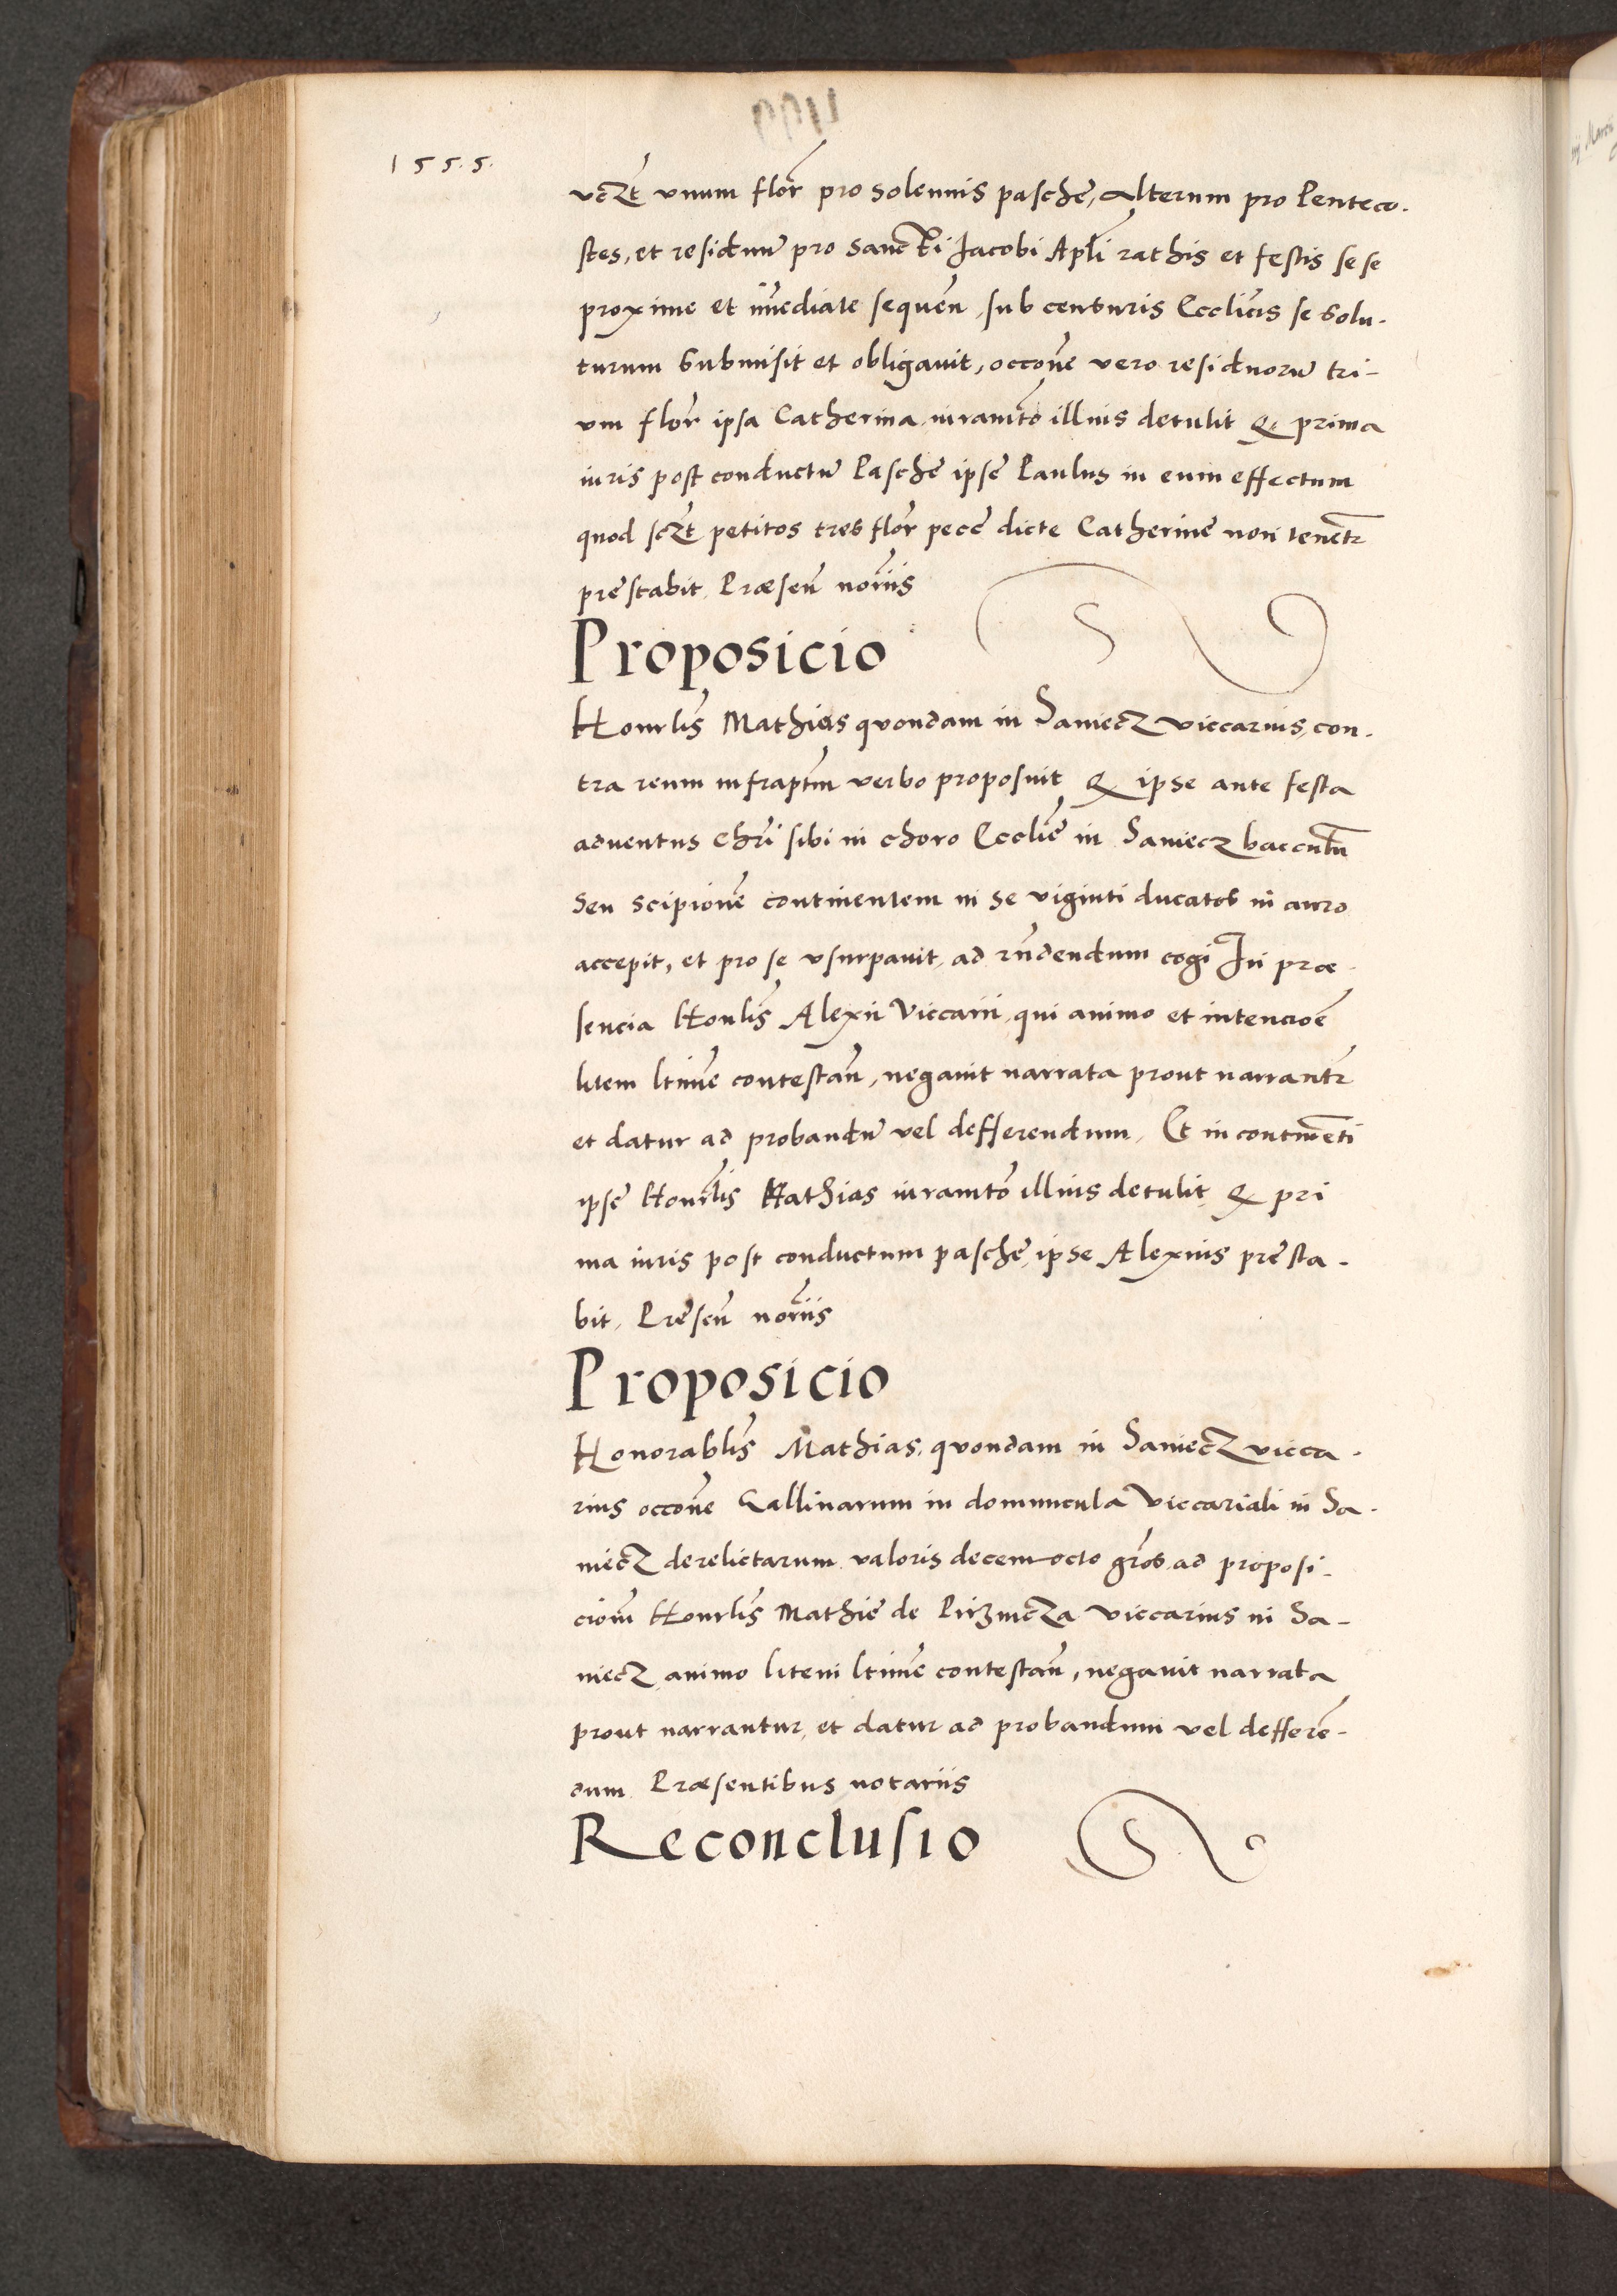 1555.
vczt vnum flor pro solennis pasche, alterum pro Penteco-
stes, et residuũ pro Sancti Jacobi Apli rathis et festis se se
proxime et ĩmediate sequeñ, sub censuris Ecclicis se Solu-
turum Submisit et obligauit, occoñe vero residuorũ tri-
um flor ipsa Catherina iuramto illius detulit Q prima
iuris post conductũ Pasche ipse Paulus in eum effectum
quod sczt petitos tres flor pecc dicte Catherine non tenetr
prestabit. Præseñ noriis
Proposicio
Honrlis Mathias quondam in Saniecz viccarius, con-
tra reum infraptm verbo proposuit Q ipse ante festa
aduentus Chri sibi in choro Ecclie in Saniecz baccultũ
Seu scipionẽ continentem in se viginti ducatos in auro
accepit, et pro se vsurpauit, ad rñdendum cogi In præ-
sencia Honlis Alexii Viccarii, qui animo et intencioẽ
litem ltime contestañ, negauit narrata prout narrantr
et datur ad probandũ vel defferendum. Et in continẽti
ipse Honrlis Mathias iuramto illius detulit Q pri
ma iuris post conductum pasche, ipse Alexius presta-
bit. Preseñ noriis
Proposicio
Honorablis Mathias, quondam in Saniecz vicca-
rius occoñe Gallinarum in domuncula Viccariali in Sa-
niecz derelictarum valoris decemocto gros ad proposi-
cioñ Honrlis Mathie de viccarius in Sa-
niecz animo litem ltime contestañ, negauit narrata
prout narrantur, et datur ad probandum vel defferẽ-
dum Præsentibus notariis
Reconclusio